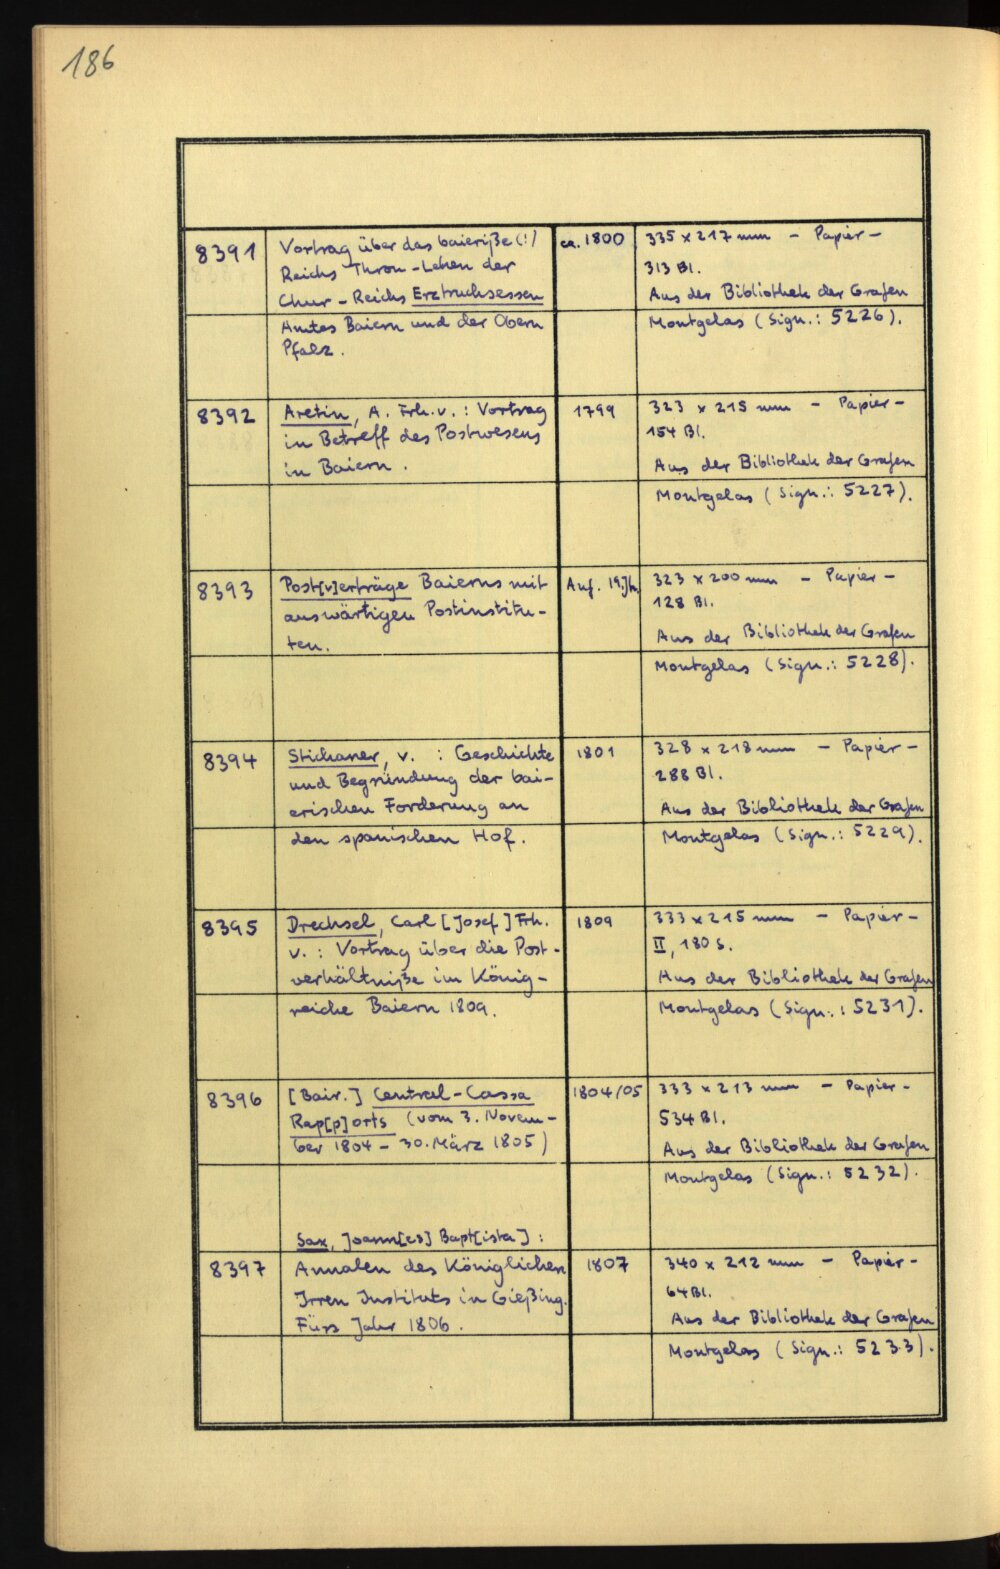 186
8391
Vortrag über das baieriße (!)
Reichs Thron-Lehen der
Chur-Reichs Erztruchsessen
Amtes Baiern und der Obern
Pfalz.
ca. 1800
335 x 217 mm – Papier –
313 Bl.
Aus der Bibliothek der Grafen
Montgelas (Sign.: 5226).
8392
Aretin, A. Frh. v. : Vortrag
in Betreff des Postwesens
in Baiern.
1799
323 x 215 mm – Papier –
154 Bl.
Aus der Bibliothek der Grafen
Montgelas (Sign.: 5227).
8393
Post[v]erträge Baierns mit
auswärtigen Postinstitu-
ten.
Anf. 19.Jh.
323 x 200 mm – Papier –
128 Bl.
Aus der Bibliothek der Grafen
Montgelas (Sign.: 5228).
8394
Stichaner, v. : Geschichte
und Begründung der bai-
erischen Forderung an
den spanischen Hof.
1801
328 x 218 mm – Papier –
288 Bl.
Aus der Bibliothek der Grafen
Montgelas (Sign.: 5229).
8395
Drechsel, Carl [Josef] Frh.
v. : Vortrag über die Post-
verhältniße im König-
reiche Baiern 1809.
1809
333 x 215 mm – Papier –
II, 180 S.
Aus der Bibliothek der Grafen
Montgelas (Sign.: 5231).
8396
[Bair.] Central-Cassa
Rap[p]orts (vom 3. Novem-
ber 1804 – 30. März 1805)
1804/05
333 x 213 mm – Papier –
534 Bl.
Aus der Bibliothek der Grafen
Montgelas (Sign.: 5232).
Sax, Joann[es] Bapt[ista] :
8397
Annalen des Königlichen
Irren Instituts in Gießing.
Fürs Jahr 1806.
1807
340 x 212 mm – Papier –
64 Bl.
Aus der Bibliothek der Grafen
Montgelas (Sign.: 5233).